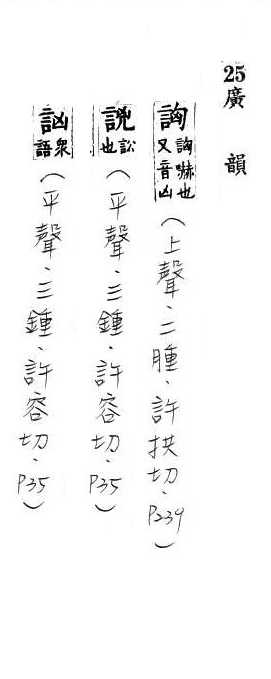 25廣韻
詾 詾嚇也又音凶(上聲、二腫、許拱切、P239)
訟也(平聲、三鍾、許容切、P35)
訩 衆語(平聲、三鍾、許容切、P35)